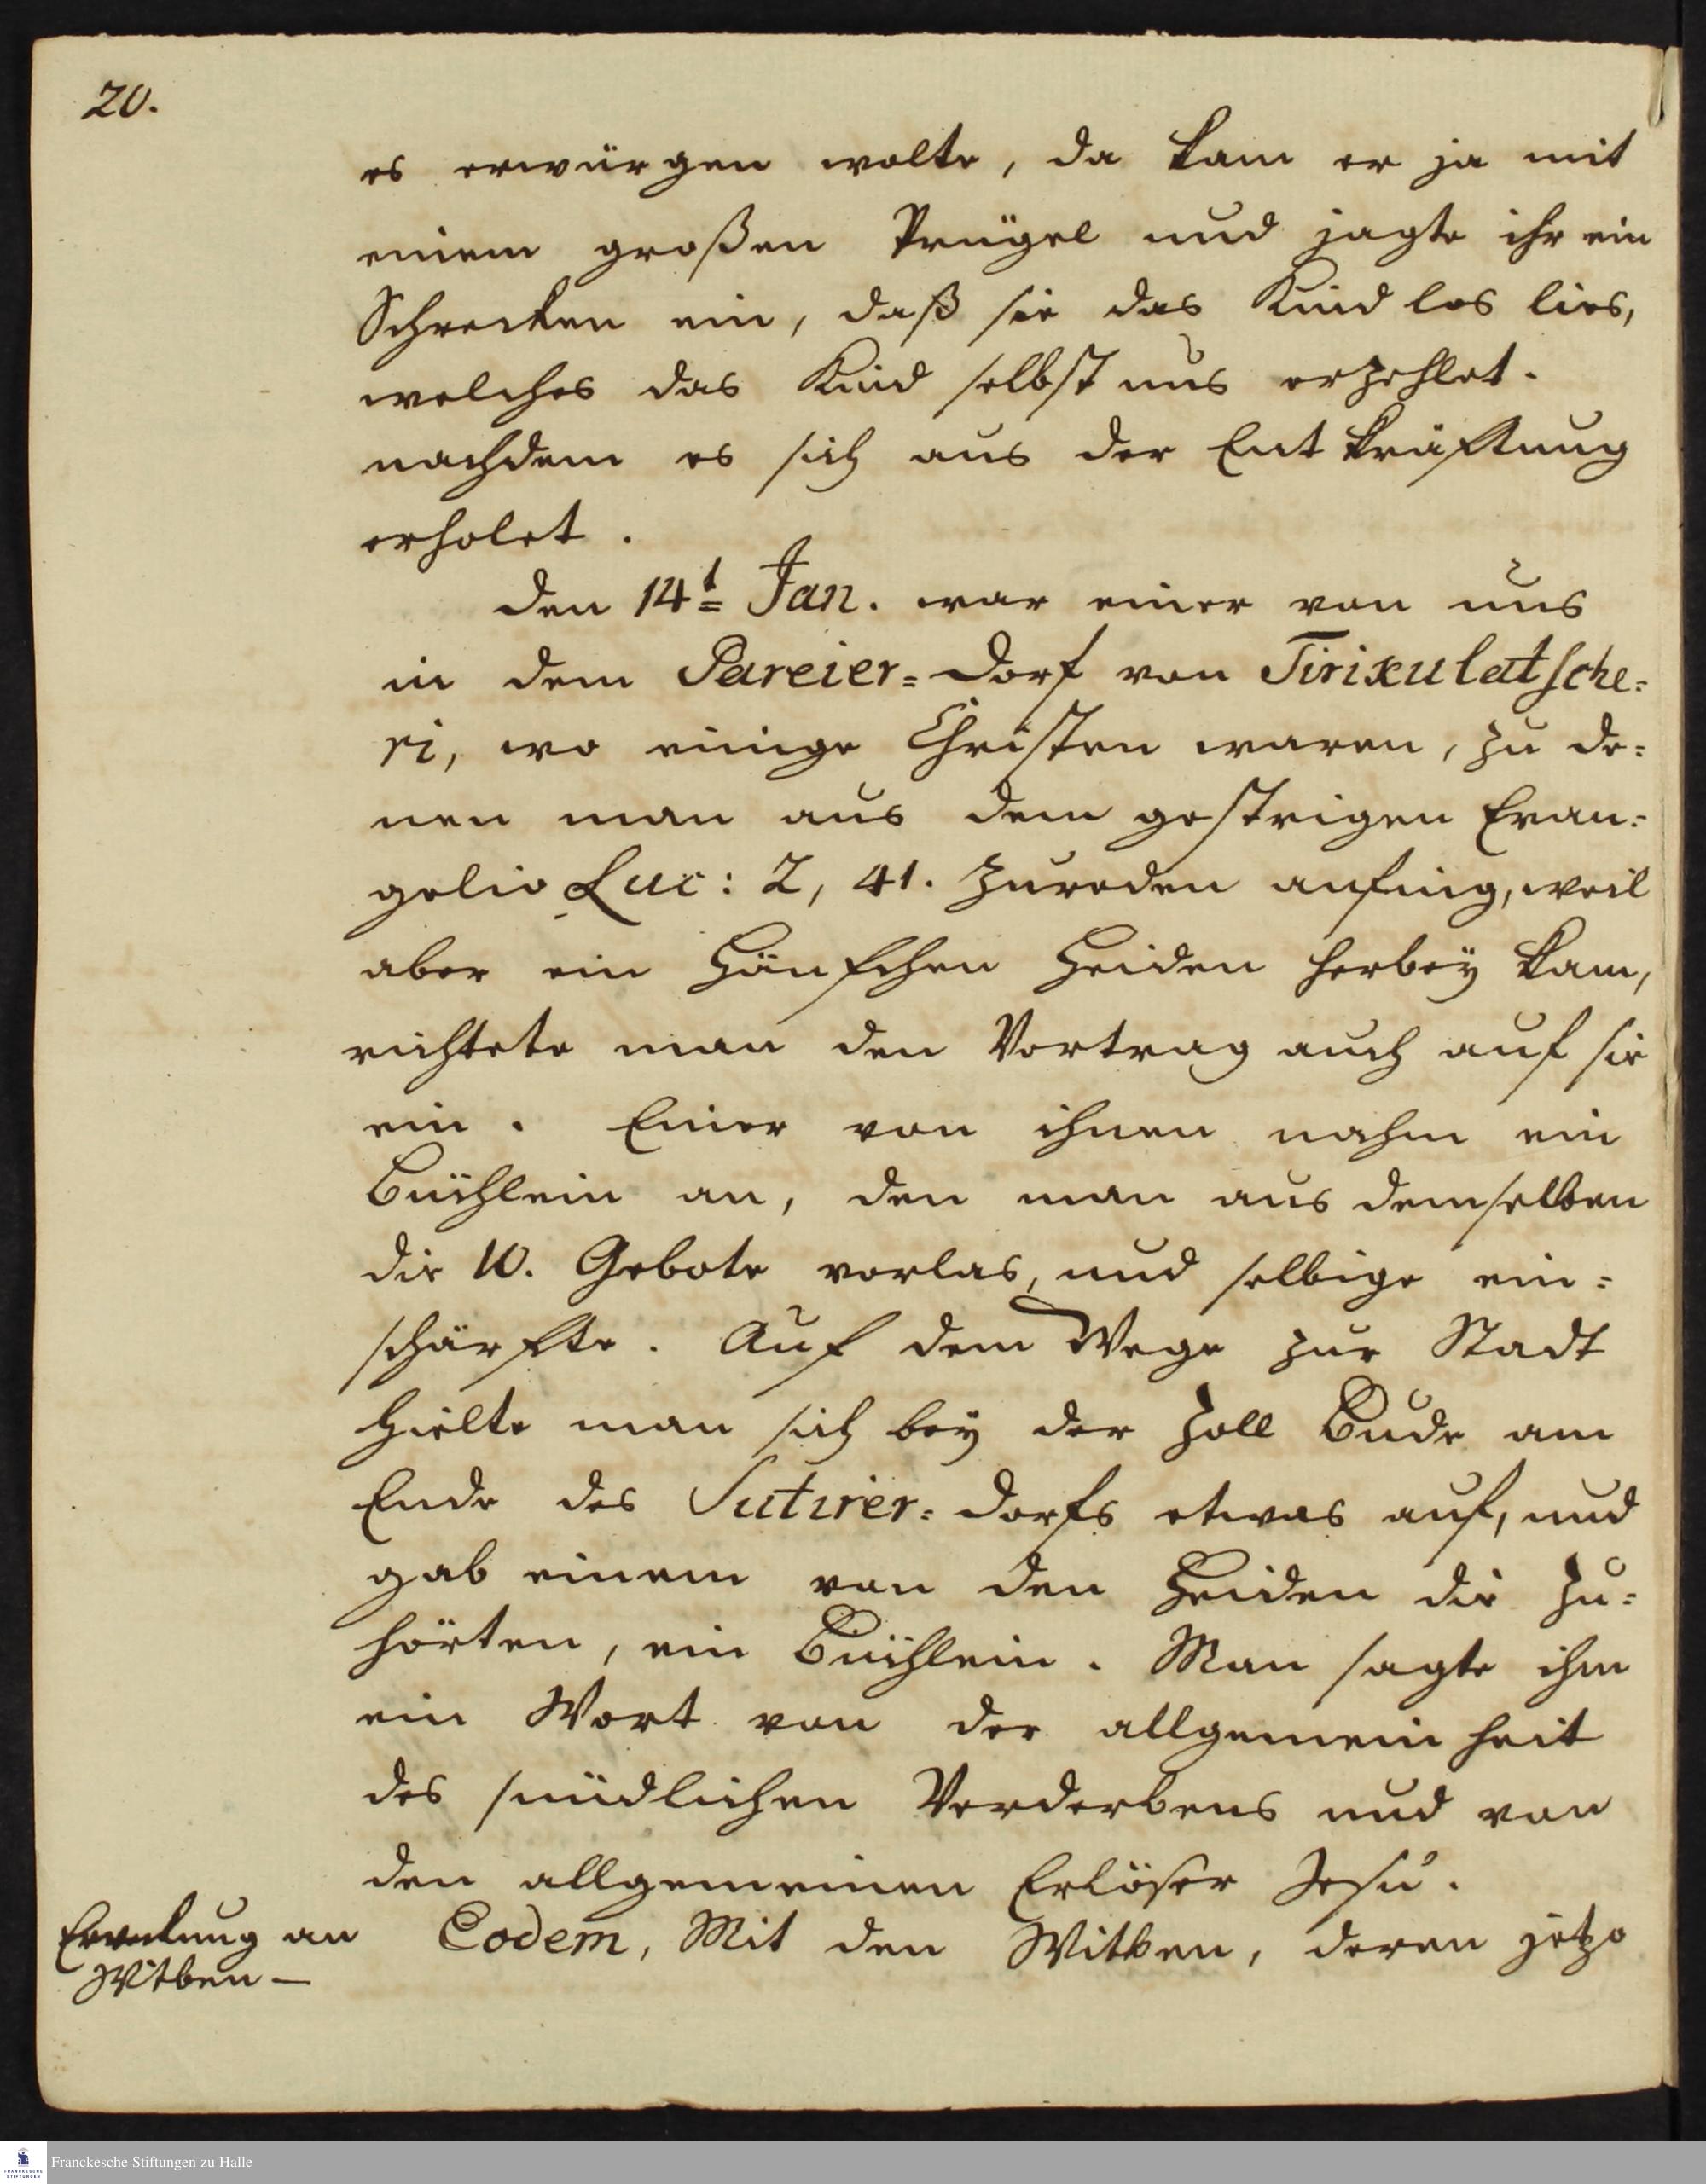 20.
es erwürgen wolte, da kam er ja mit
einem großen Prügel und jagte ihr ein
Schrecken ein, daß sie das Kind los lies,
welches das Kind selbst uns erzehlet.
nachdem es sich aus der Entkräftung
erholet.
den 14t Jan. war einer von uns
in dem Pareier=dorf von Tirixulatsche=
ri, wo einige Christen waren, zu de=
nen man aus dem gestrigen Evan=
gelio Luc: 2, 41. zureden anfing, weil
aber ein Häufchen Heiden herbey kam,
richtete man den Vortrag auch auf sie
ein. Einer von ihnen nahm ein
Büchlein an, den man aus demselben
die 10. Gebote vorlas, und selbige ein=
schärfte. Auf dem Wege zur Stadt
hielte man sich bey der Zoll Bude am
Ende des Sutirer=dorfs etwas auf, und
gab einem von den Heiden die zu=
hörten, ein Büchlein. Man sagte ihm
ein Wort von der allgemeinheit
des sündlichen Verderbens und von
den allgemeinen Erlöser Jesu.
Erweckung an
Witben —
Eodem, Mit den Witben, deren jetzo
Franckesche Stiftungen zu Halle
FRANCKESCHE
STIFTUNGEN